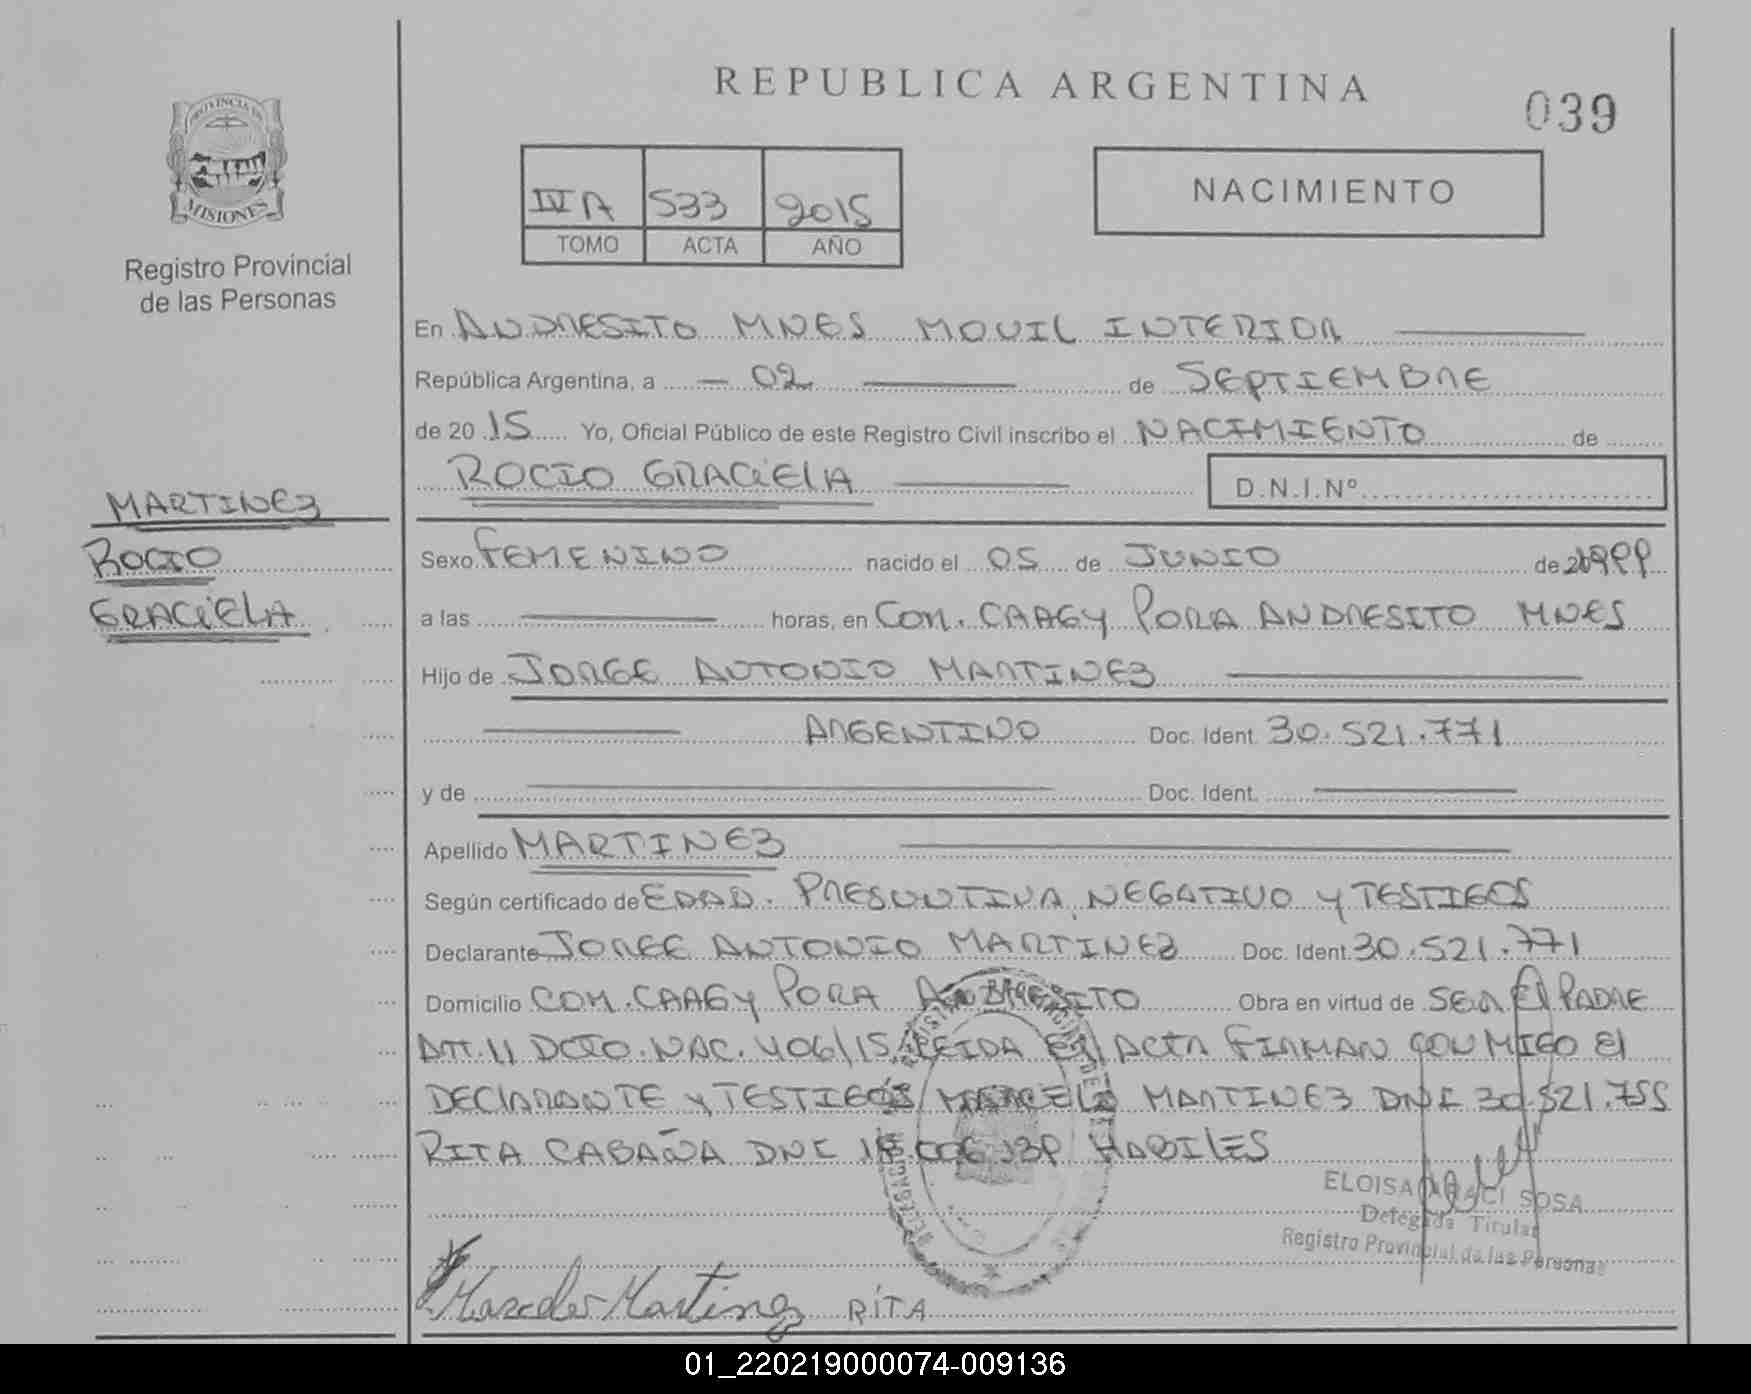 REPUBLICA ARGENTINA
039
PROVINCIA DE
MISIONES
Registro Provincial
de las Personas
IV A 533 2015
TOMO ACTA AÑO
NACIMIENTO
En ANDRESITO MNES MOVIL INTERIOR
República Argentina, a 02 de SEPTIEMBRE
de 2015 Yo, Oficial Público de este Registro Civil inscribo el NACIMIENTO de
ROCIO GRACIELA
D.N.I.Nº
MARTINEZ
ROCIO
GRACIELA
Sexo FEMENINO nacido el 05 de JUNIO de 1999
a las horas, en COM. CAAGY PORA ANDRESITO MNES
Hijo de JORGE ANTONIO MARTINEZ
ARGENTINO Doc. Ident. 30.521.771
y de Doc. Ident.
Apellido MARTINEZ
Según certificado de EDAD. PRESUNTIVA, NEGATIVO Y TESTIGOS
Declarante JORGE ANTONIO MARTINEZ Doc. Ident. 30.521.771
Domicilio COM. CAAGY PORA ANDRESITO Obra en virtud de SER El PADRE
ART. 11 DCTO. NAC. 406/15 LEIDA El ACTA FIRMAN CONMIGO El
DEClARANTE Y TESTIGOS MARTINEZ DNI 30.521.755
RITA CABAÑA DNI HABILES
ELOISA ARACI SOSA
Delegada Titular
Registro Provincial de las Personas
Martinez RITA
01_220219000074-009136